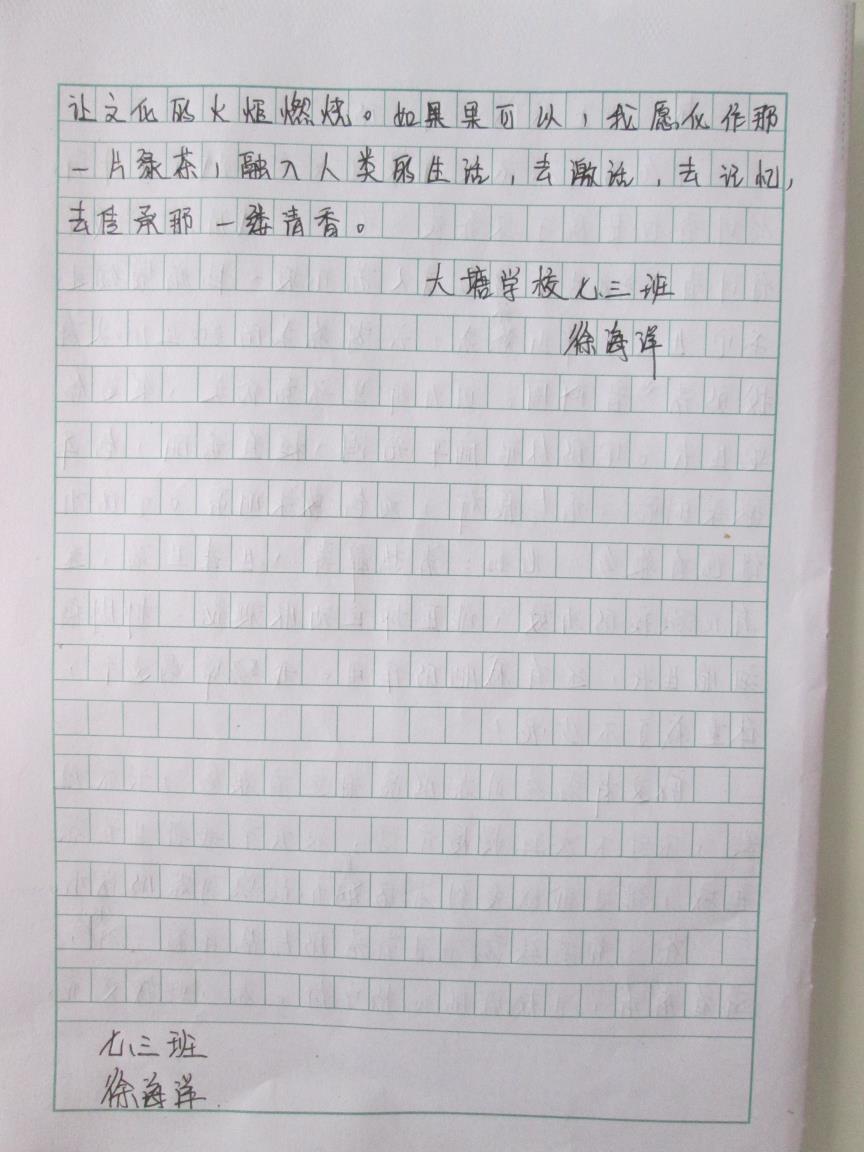 让文化的火炬燃烧。如果果可以,我愿化作那
一片绿茶,融入人类的生活,去激活,去记忆,
去传承那一缕清香。
大塘学校七三班
徐海洋
七三班
徐海洋